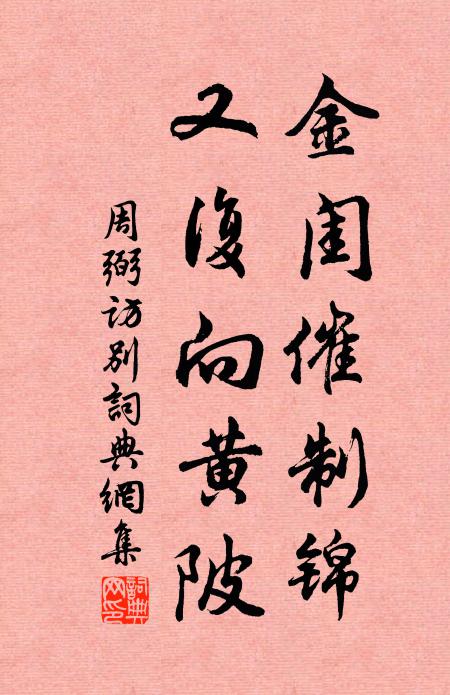 金闺催制锦
又復向黄陂
周弼访别詞典網集
詞典网印